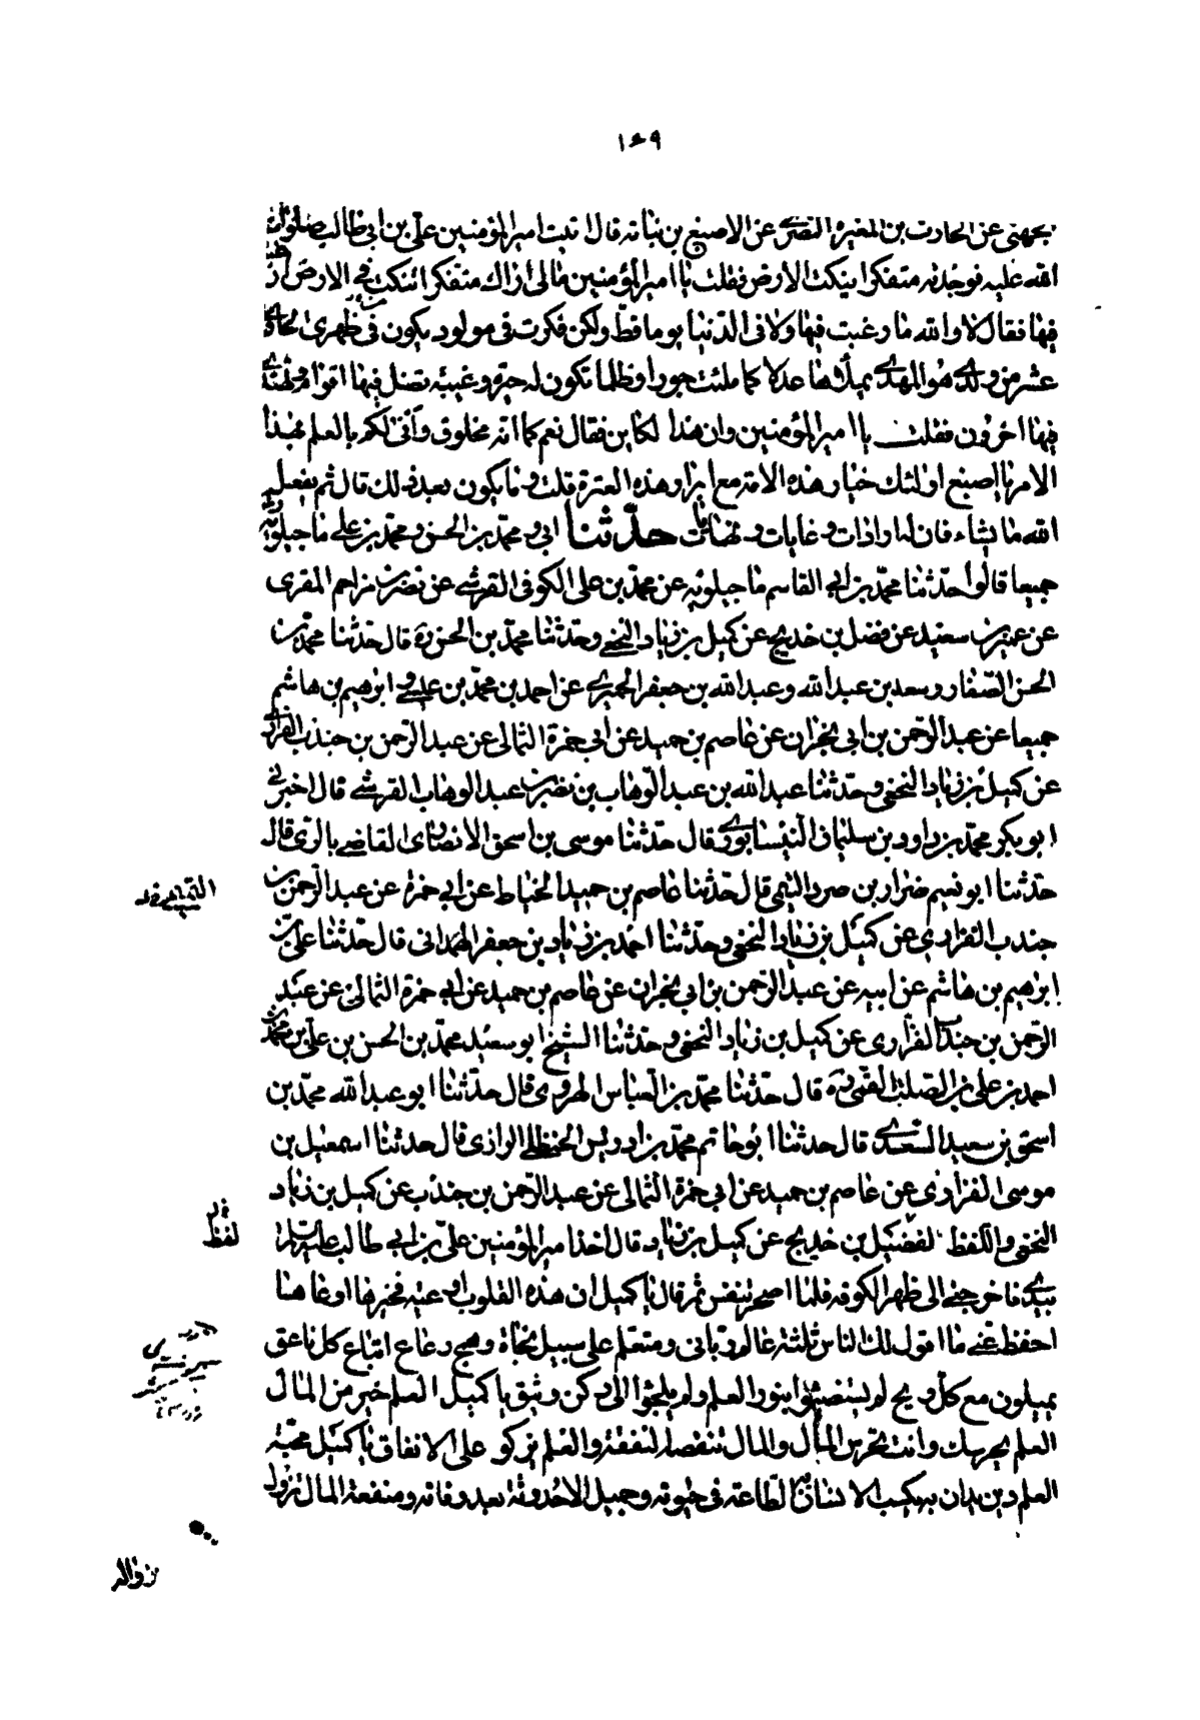 ١٦٩
الجهنى عن الحارث بن المغيرة النصرى عن الاصبغ بن نباتة قال اتيت امير المؤمنين على بن ابى طالب صلوات
الله عليه فوجدته متفكرا ينكت الارض فقلت يا امير المؤمنين مالى اراك متفكرا تنكت فى الارض ارغبة
فيها فقال لا والله ما رغبت فيها ولا فى الدنيا يوما قط ولكن فكرت فى مولود يكون فى ظهرى الحادى
عشر من ولدى هو المهدى يملأها عدلا كما ملئت جورا وظلما تكون له حيرة وغيبة تضل فيها اقوام ويهتدى
فيها اخرون فقلت يا امير المؤمنين وان هذا لكاين فقال نعم كما انه مخلوق وانى لكم بالعلم بهذا
الامر يا اصبغ اولئك خيار هذه الامة مع ابرار هذه العترة قلت وما يكون بعد ذلك قال ثم يفعل
الله ما يشاء فان له ارادات وغايات ونهايات حدثنا ابى ومحمد بن الحسن ومحمد بن على ماجيلويه
جميعا قالوا حدثنا محمد بن ابى القاسم ماجيلويه عن محمد بن على الكوفى القرشى عن نصر بن مزاحم المقرى
عن عمر بن سعيد عن فضل بن خديج عن كميل بن زياد النخعى وحدثنا محمد بن الحسن ره قال حدثنا محمد بن
الحسن الصفار وسعد بن عبد الله وعبد الله بن جعفر الحميرى عن احمد بن محمد بن عيسى وابرهيم بن هاشم
جميعا عن عبد الرحمن بن ابى نجران عن عاصم بن حميد عن ابى حمزة الثمالى عن عبد الرحمن بن جندب الفزارى
عن كميل بن زياد النخعى وحدثنا عبد الله بن عبد الوهاب بن نصر بن عبد الوهاب القرشى قال اخبرنى
ابو بكر محمد بن داود بن سليمان النيسابورى قال حدثنا موسى بن اسحق الانصارى القاضى بالرى قال
حدثنا ابو نعيم ضرار بن صرد التيمى قال حدثنا عاصم بن حميد الخياط عن ابى حمزة عن عبد الرحمن بن
جندب الفزارى عن كميل بن زياد النخعى وحدثنا احمد بن زياد بن جعفر الهمدانى قال حدثنا على بن
ابرهيم بن هاشم عن ابيه عن عبد الرحمن بن ابى نجران عن عاصم بن حميد عن ابى حمزة الثمالى عن عبد
الرحمن بن جندب الفزارى عن كميل بن زياد النخعى وحدثنا الشيخ ابو سعيد محمد بن الحسن بن على بن محمد بن
احمد بن على بن الصلت القمى ره قال حدثنا محمد بن العباس الهروى قال حدثنا ابو عبد الله محمد بن
اسحق بن سعيد السعدى قال حدثنا ابو حاتم محمد بن ادريس الحنظلى الرازى قال حدثنا اسمعيل بن
موسى الفزارى عن عاصم بن حميد عن ابى حمزة الثمالى عن عبد الرحمن بن جندب عن كميل بن زياد
النخعى واللفظ لفضيل بن خديج عن كميل بن زياد قال اخذ امير المؤمنين على بن ابى طالب عليه السلام
لفظ
بيدى فاخرجنى الى ظهر الكوفة فلما اصحر تنفس ثم قال يا كميل ان هذه القلوب اوعية فخيرها اوعاها
احفظ عنى ما اقول لك الناس ثلثة عالم ربانى ومتعلم على سبيل نجاة وهمج رعاع اتباع كل ناعق
يميلون مع كل ريح لم يستضيئوا بنور العلم ولم يلجئوا الى ركن وثيق يا كميل العلم خير من المال
العلم يحرسك وانت تحرس المال والمال تنقصه النفقة والعلم يزكو على الانفاق يا كميل محبة
العلم دين يدان به يكسب الانسان الطاعة فى حيوته وجميل الاحدوثة بعد وفاته ومنفعة المال تزول
بزواله